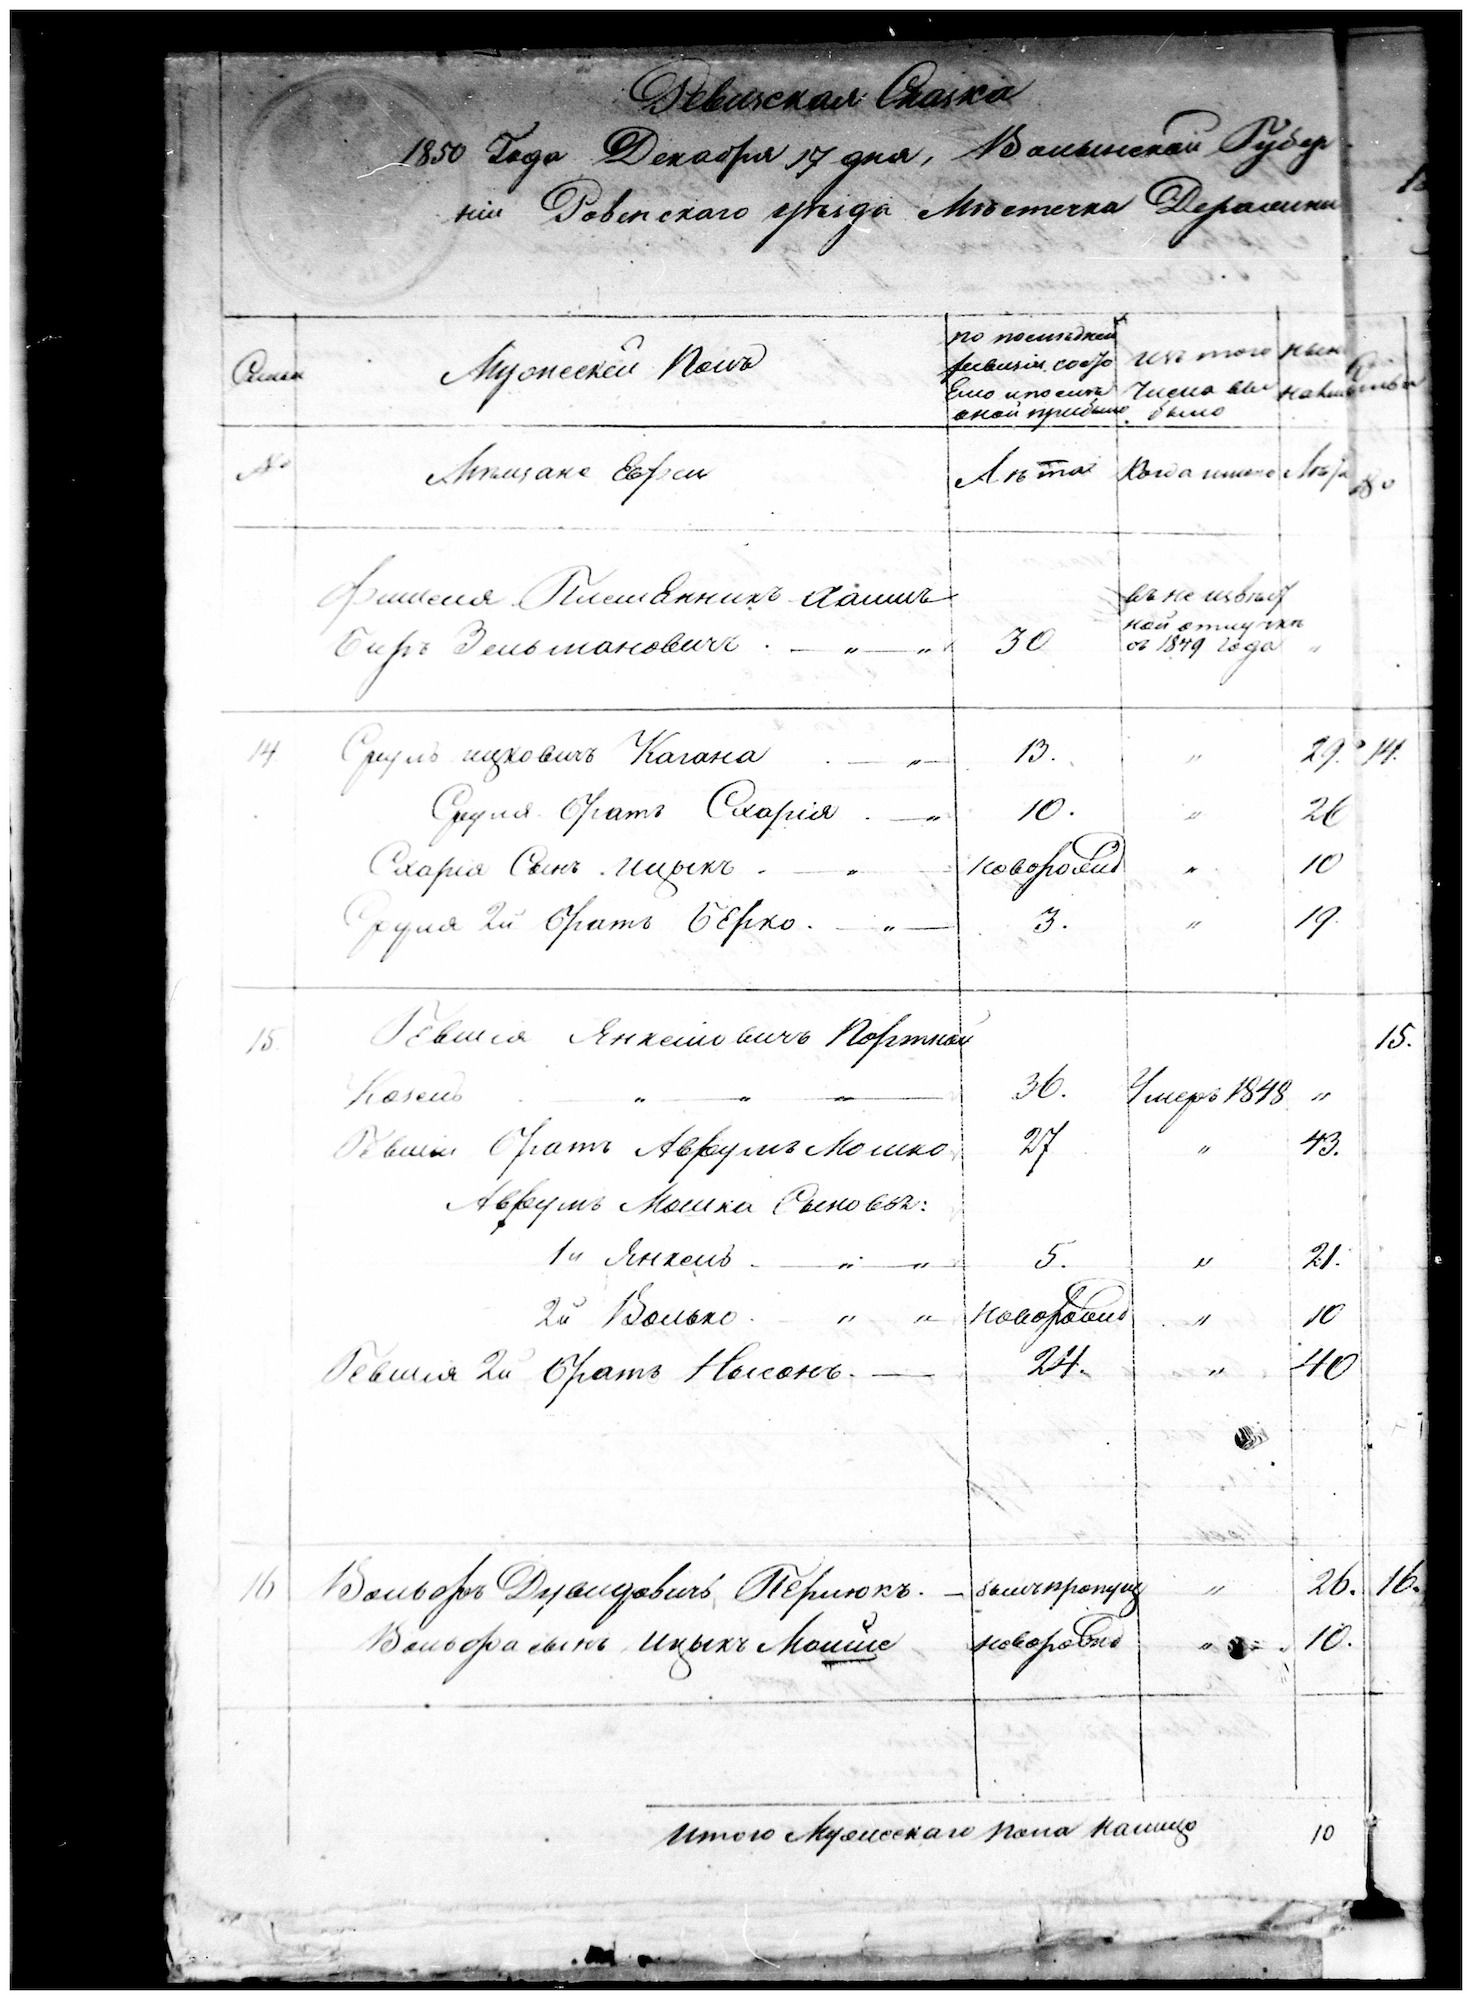 Ревизская Сказка
1850 Года Декабря 17 дня, Волынской Губер
нiи Ровенского уѣзда Мѣстечка Деражни
Семьи
Мужескiй Полъ
по последней ревизiи состо
яло и после оной прибыло
изъ того числа вы было
ныне налицо
№
Мѣщане Евреи
Лѣта
Когда именно
Лѣта
№
Фишеля Племянникъ Хаимъ
Беръ Зельмановичъ . — „ — „ 30 въ неизвѣст
ной отлучкѣ
съ 1849 года „
14 Сруль Ицковичъ Кагана . — „ — 13. „ 29. 14.
Сруля братъ Схарiя . — „ 10. „ 26
Схарiя Сынъ Ицыкъ . — „ — новорожд „ 10
Сруля 2й братъ Берко . — „ — 3. „ 19.
15 Гевшiя Янкелiовичъ Портной 15.
Козелъ „ — „ — „ 36. Умеръ 1848 „
Гевшiя братъ Аврумъ Мошко 27 „ 43.
Аврумъ Мошка Сыновья:
1й Янкель . — „ — „ 5. „ 21.
2й Волько . „ „ новорожд „ 10
Гевшiя 2й братъ Нысонъ . — 24. „ 40
16 Вольфъ Дувидовичъ Перлюкъ . — былъ пропущ „ 26. 16.
Вольфа сынъ Ицыкъ Мойше новорожд „ 10.
Итого Мужескаго пола налицо 10